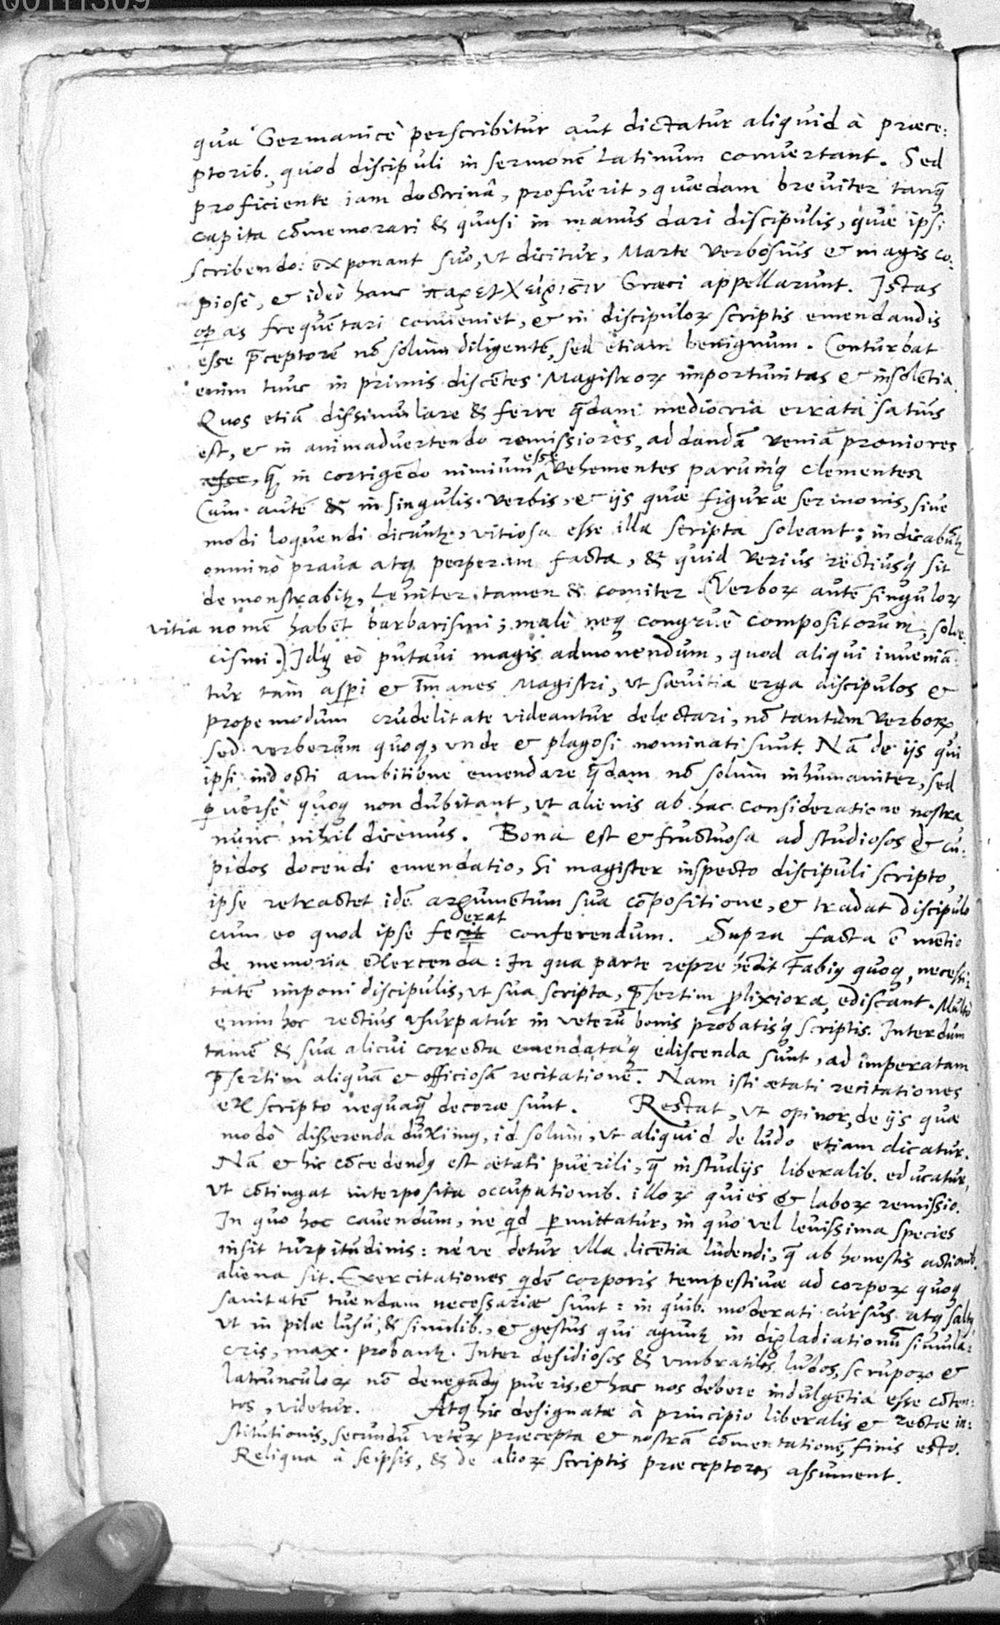 00111309
qua Germanicè perscribitur aut dictatur aliquid à præce:
ptorib. quod discipuli in sermonē Latinum convertant. Sed
proficiente iam doctrinâ, profuerit, quædam breviter tanq̃
capita cōmemorari & quasi in manus dari discipulis, quæ ipsi
scribendo: exponant suo, ut dicitur, Marte verbosius & magis co:
piosè, & ideò hanc Græci appellarunt. Istas
oꝑas frequentari conveniet, & in discipuloꝝ scriptis emendandis
esse p̃ceptorē nō solùm diligentē, sed etiam benignum. Conturbat
enim tunc in primis discētes Magistroꝝ importunitas & insolētia.
Quos etiā dissimulare & ferre q̃dam mediocria errata satius
est, & in animadvertendo remissiores, ad dandā veniā proniores
esse, q̃ in corrigēdo nimium esse vehementes parumq́ clementes
Cum autē & in singulis verbis, & ijs quæ figuræ sermonis, sive
modi loquendi dicunt᷑, vitiosa esse illa scripta soleant; indicabunt᷑
omnino prava atq; perperam facta, & quid verius rectiusq́ sit
demonstrabit᷑, leniter tamen & comiter. (Verboꝝ autē singuloꝝ
vitia nomē habēt barbarismi; malè neq; congruè compositorum, solœ:
cismi.) Idq́ eò putavi magis admonendum, quod aliqui inveniā:
tur tam asꝑi & īmanes Magistri, ut sævitia erga discipulos &
propemodum crudelitate videantur delectari, nō tantùm verboꝝ
sed verberum quoq;, unde & plagosi nominati sunt. Nā de ijs qui
ipsi indocti ambitione emendare q̃dam nō solùm inhumaniter, sed
ꝑversè quoq; non dubitant, ut alienis ab hac consideratione nostra
nunc nihil dicemus. Bona est & fructuosa ad studiosos & cu:
pidos docendi emendatio, si magister inspecto discipuli scripto,
ipse retractet idē argumētum sua cōpositione, & tradat discipulo
cum eo quod ipse fecit derat conferendum. Supra facta ē mētio
de memoria exercenda: In qua parte reprehēdit Fabiꝰ quoq; necessi:
tatē imponi discipulis, ut sua scripta, p̃sertim ꝓlixiora, ediscant. Multò
enim hoc rectius usurpatur in veterū bonis probatisq́ scriptis. Interdum
tamē & sua alicui correcta emendataq́ ediscenda sunt, ad imperatam
p̃sertim aliquā & officiosā recitationē. Nam isti ætati recitationes
ex scripto nequaq̃ decoræ sunt. Restat, ut opinor, de ijs quæ
modò disserenda duximꝰ, id solùm, ut aliquid de ludo etiam dicatur.
Nā & hic cōcedendꝰ est ætati puerili, q̃ in studijs liberalib. educatur,
ut cōtingat interposita occupationib. illoꝝ quies & laboꝝ remissio.
In quo hoc cavendum, ne q̓d ꝑmittatur, in quo vel levissima species
insit turpitudinis: néve detur ulla licētia ludendi, q̃ ab honestis actionib.
aliena sit. Exercitationes q̓dē corporis tempestivæ ad corpoꝝ quoq;
sanitatē tuendam necessariæ sunt: in quib. moderati cursus atq; salt,
ut in pilæ lusu, & similib., & gestus qui agunt᷑ in digladiationū simula:
cris, max. probant᷑. Inter desidiosos & umbratiles ludos, scrupoꝝ &
latrunculoꝝ nō denegandꝰ pueris, & hac nos debere indulgētia esse cōten:
tos, videtur. Atq; hic designatæ à principio liberalis & rectæ in:
stitutionis, secundū veteꝝ præcepta & nostrā cōmentationē, finis esto.
Reliqua à seipsis, & de alioꝝ scriptis præceptores assument.